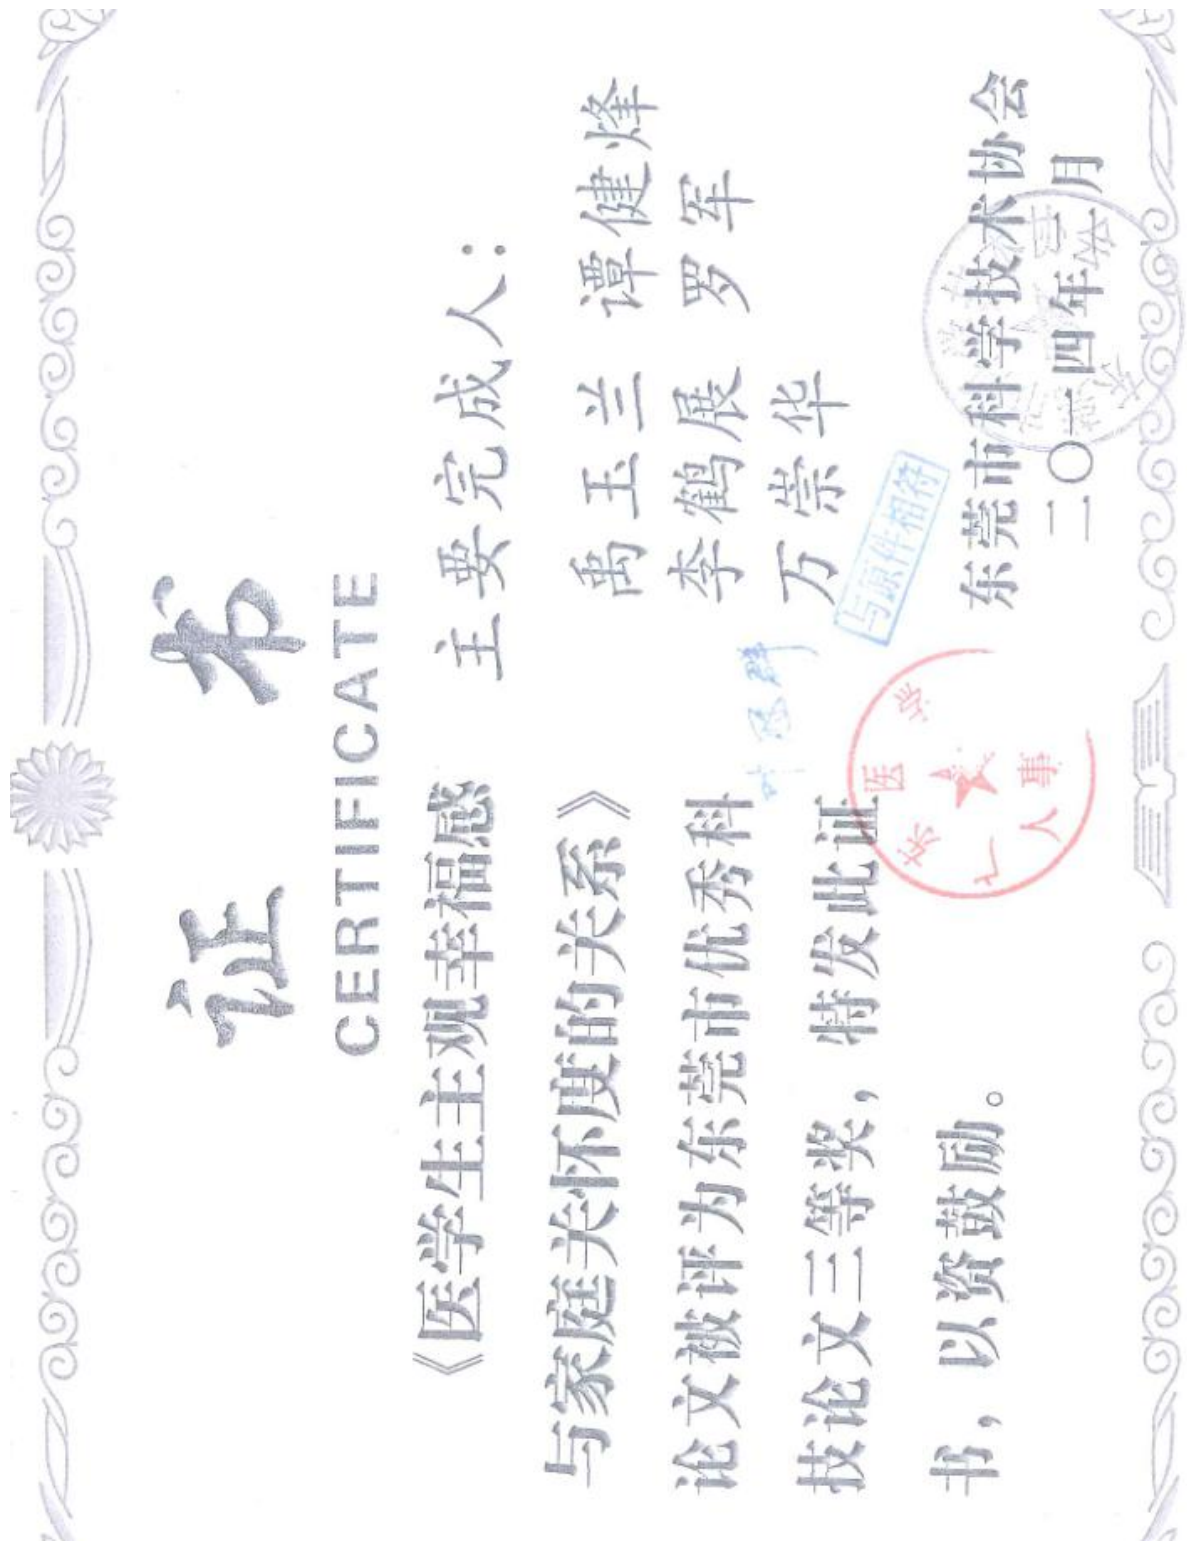 证 书
CERTIFICATE
《医学生主观幸福感
与家庭关怀度的关系》
论文被评为东莞市优秀科
技论文三等奖，特发此证
书，以资鼓励。
主要完成人：
禹玉兰 谭健烽
李鹤展 罗军
万崇华
与原件相符
东莞市科学技术协会
二〇一四年 月
广东医学
人事